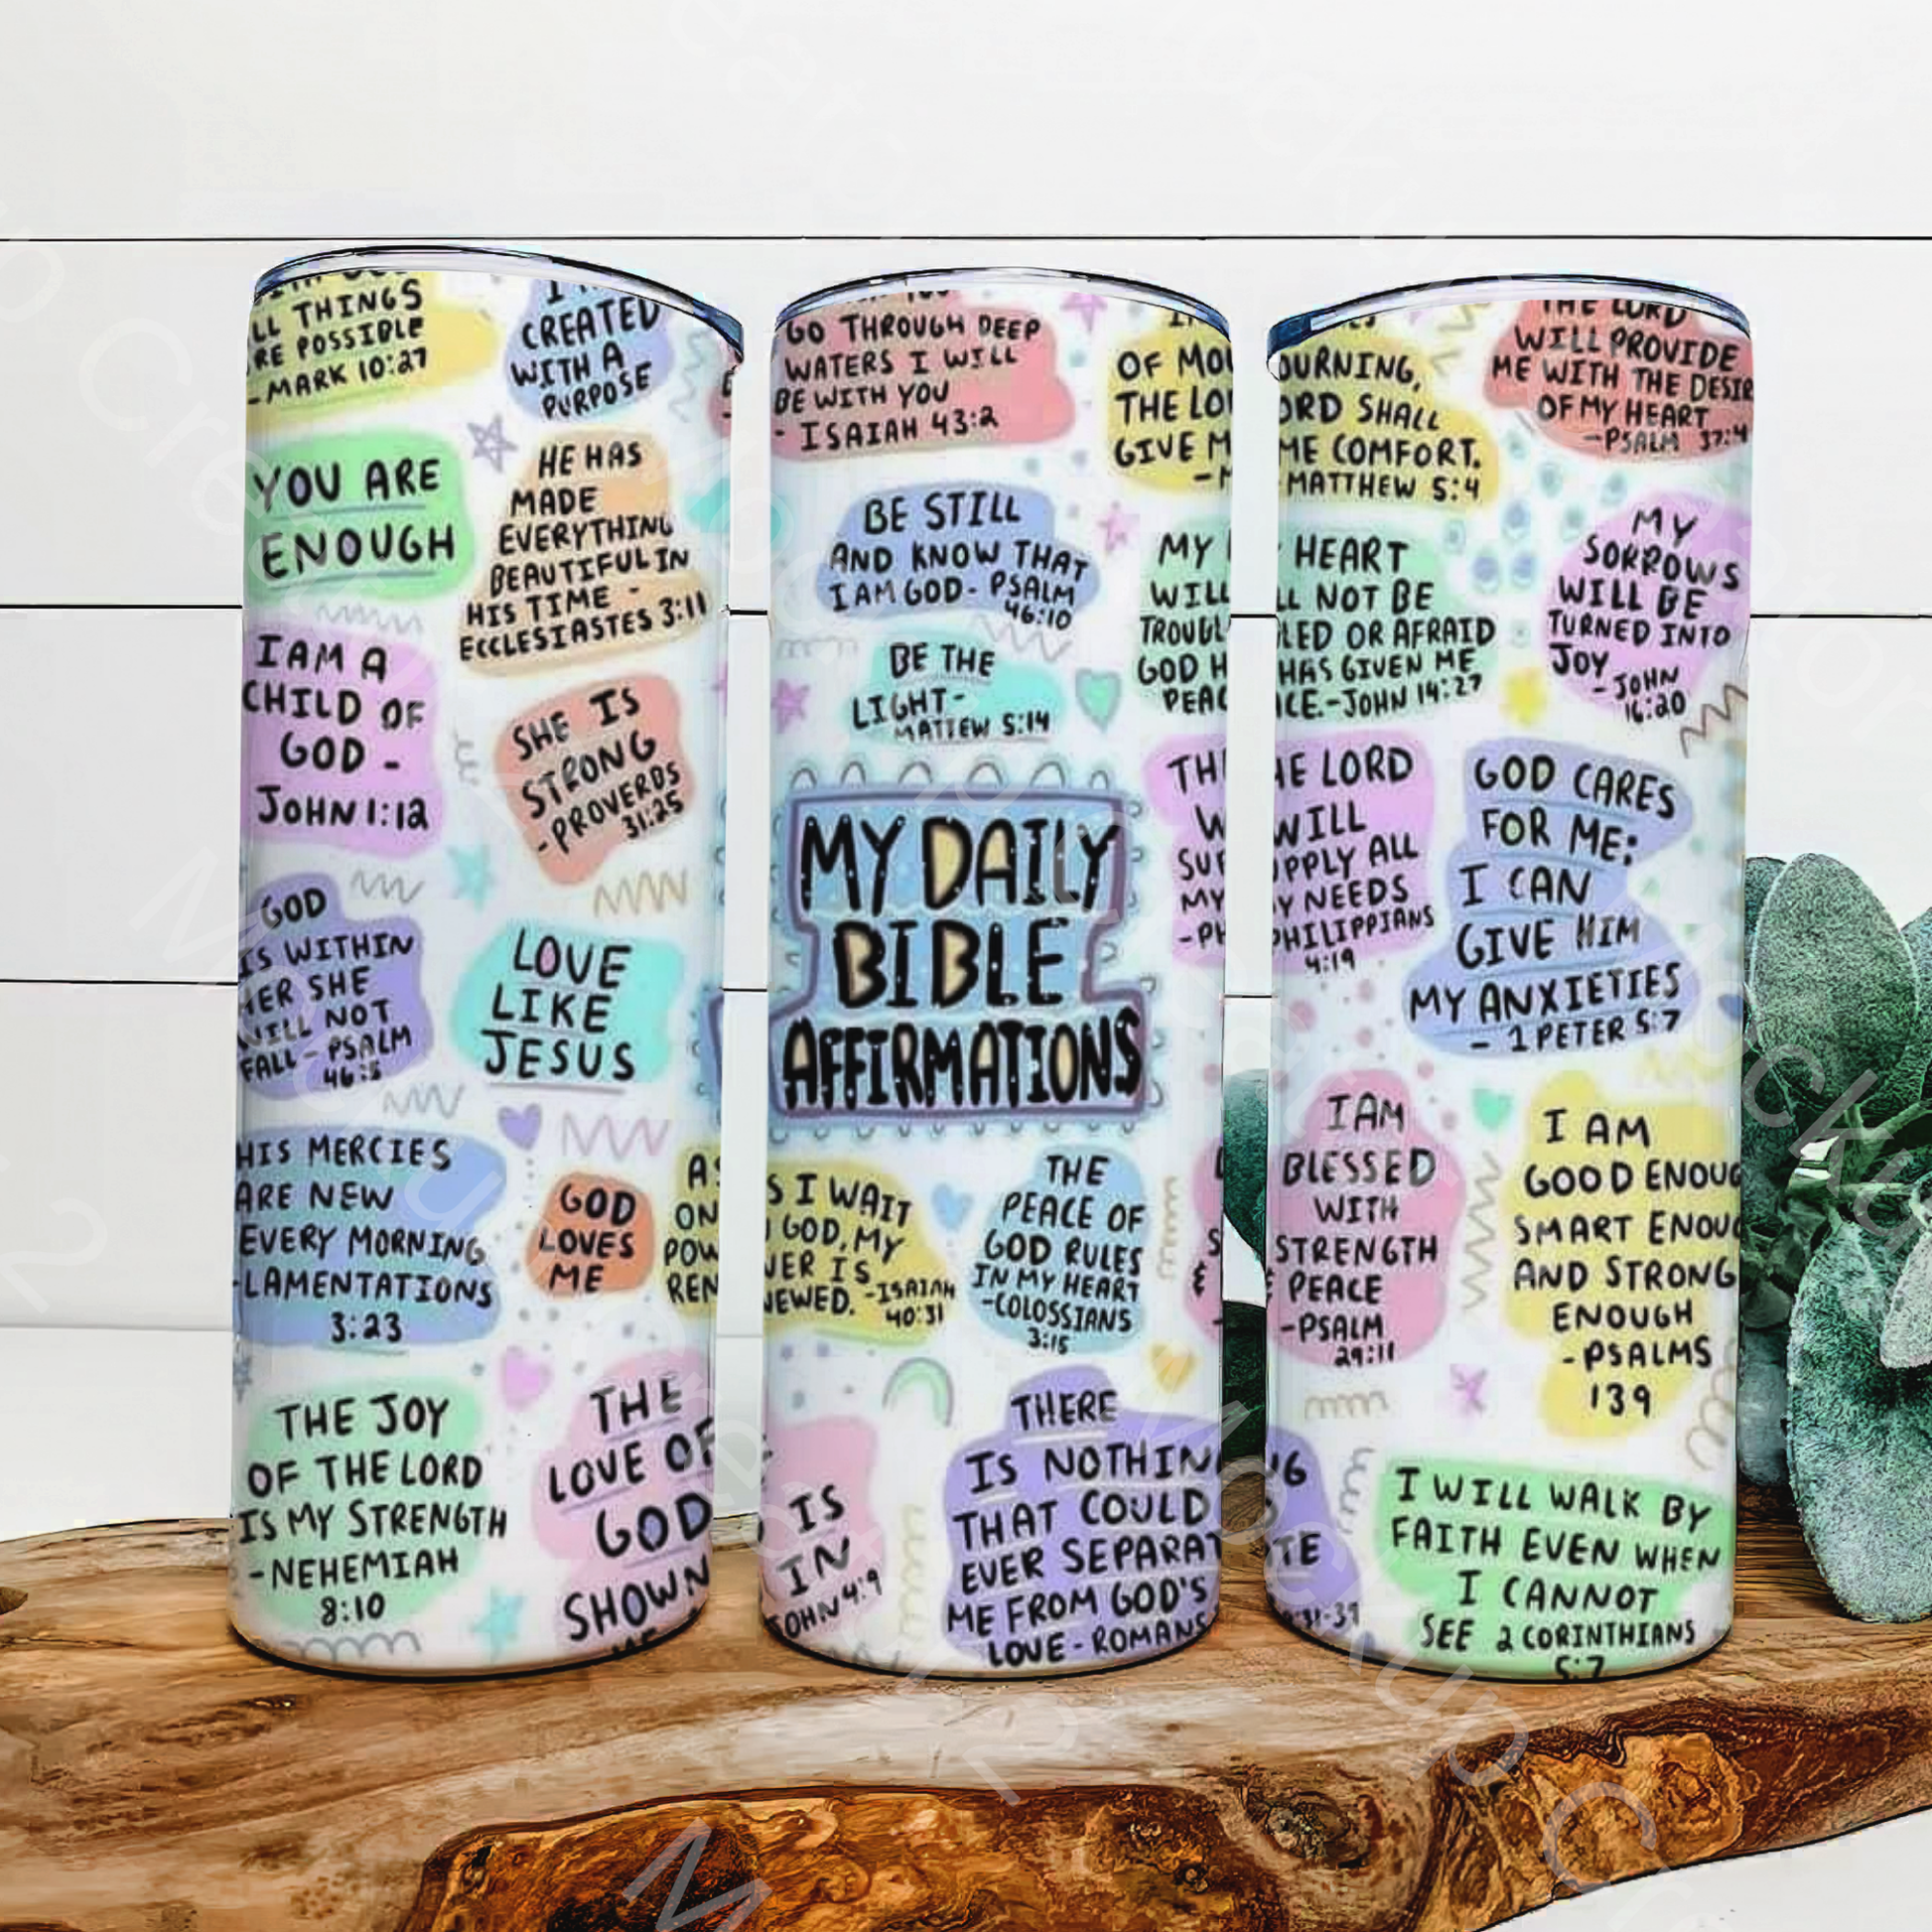 LL THINGS
RE POSSIBLE
-MARK 10:27
CREATED
WITH A
PURPOSE
YOU ARE
ENOUGH
HE HAS
MADE
EVERYTHING
BEAUTIFUL IN
HIS TIME -
ECCLESIASTES 3:11
I AM A
CHILD OF
GOD -
JOHN 1:12
SHE IS
STRONG
-PROVERBS
31:25
GOD
IS WITHIN
HER SHE
WILL NOT
FALL - PSALM
46:5
LOVE
LIKE
JESUS
HIS MERCIES
ARE NEW
EVERY MORNING
-LAMENTATIONS
3:23
GOD
LOVES
ME
AS
ON
POW
REN
THE JOY
OF THE LORD
IS MY STRENGTH
-NEHEMIAH
8:10
THE
LOVE OF
GOD
SHOWN
GO THROUGH DEEP
WATERS I WILL
BE WITH YOU
- ISAIAH 43:2
OF MOU
THE LOR
GIVE M
BE STILL
AND KNOW THAT
I AM GOD - PSALM
46:10
MY
WILL
TROUBL
GOD H
PEAC
BE THE
LIGHT -
MATTEW 5:14
MY DAILY
BIBLE
AFFIRMATIONS
THE
W
SUP
MY
-PH
S I WAIT
GOD, MY
WER IS
NEWED. -ISAIAH
40:31
THE
PEACE OF
GOD RULES
IN MY HEART
-COLOSSIANS
3:15
IS
IN
JOHN 4:9
THERE
IS NOTHIN
THAT COULD
EVER SEPARAT
ME FROM GOD'S
LOVE - ROMANS
OURNING,
ORD SHALL
ME COMFORT.
MATTHEW 5:4
THE LORD
WILL PROVIDE
ME WITH THE DESIR
OF MY HEART
-PSALM 37:4
HEART
LL NOT BE
LED OR AFRAID
HAS GIVEN ME
ACE.-JOHN 14:27
MY
SORROWS
WILL BE
TURNED INTO
JOY
-JOHN
16:20
HE LORD
WILL
PPLY ALL
Y NEEDS
PHILIPPIANS
4:19
GOD CARES
FOR ME:
I CAN
GIVE HIM
MY ANXIETIES
- 1 PETER 5:7
I AM
BLESSED
WITH
STRENGTH
& PEACE
-PSALM
29:11
I AM
GOOD ENOUG
SMART ENOUG
AND STRONG
ENOUGH
-PSALMS
139
NG
TE
I WILL WALK BY
FAITH EVEN WHEN
I CANNOT
SEE 2 CORINTHIANS
5:7